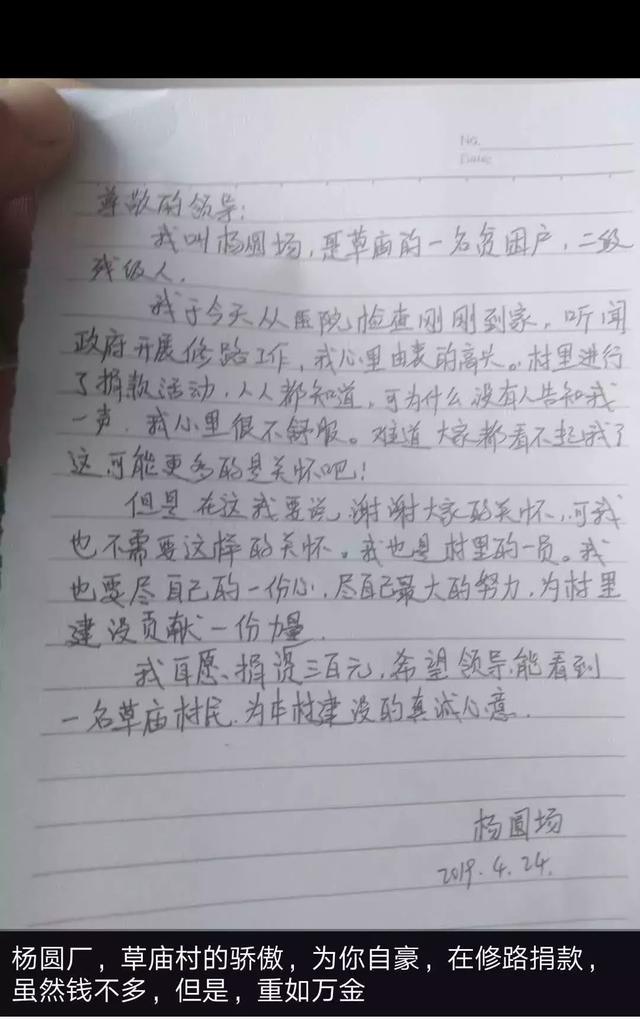 No.
Date:
尊敬的领导:
我叫杨圆场,是草庙的一名贫困户,二级
残级人.
我于今天从医院检查刚刚到家,听闻
政府开展修路工作,我心里由衷的高兴。村里进行
了捐款活动,人人都知道,可为什么没有人告知我
一声.我心里很不舒服。难道大家都看不起我了
这可能更多的是关怀吧!
但是在这我要说,谢谢大家的关怀,可我
也不需要这样的关怀。我也是村里的一员。我
也要尽自己的一份心,尽自己最大的努力,为村里
建设贡献一份力量.
我自愿捐资三百元,希望领导能看到
一名草庙村民.为本村建设的真诚心意.
杨圆场
2019.4.24.
杨圆厂,草庙村的骄傲,为你自豪,在修路捐款,
虽然钱不多,但是,重如万金